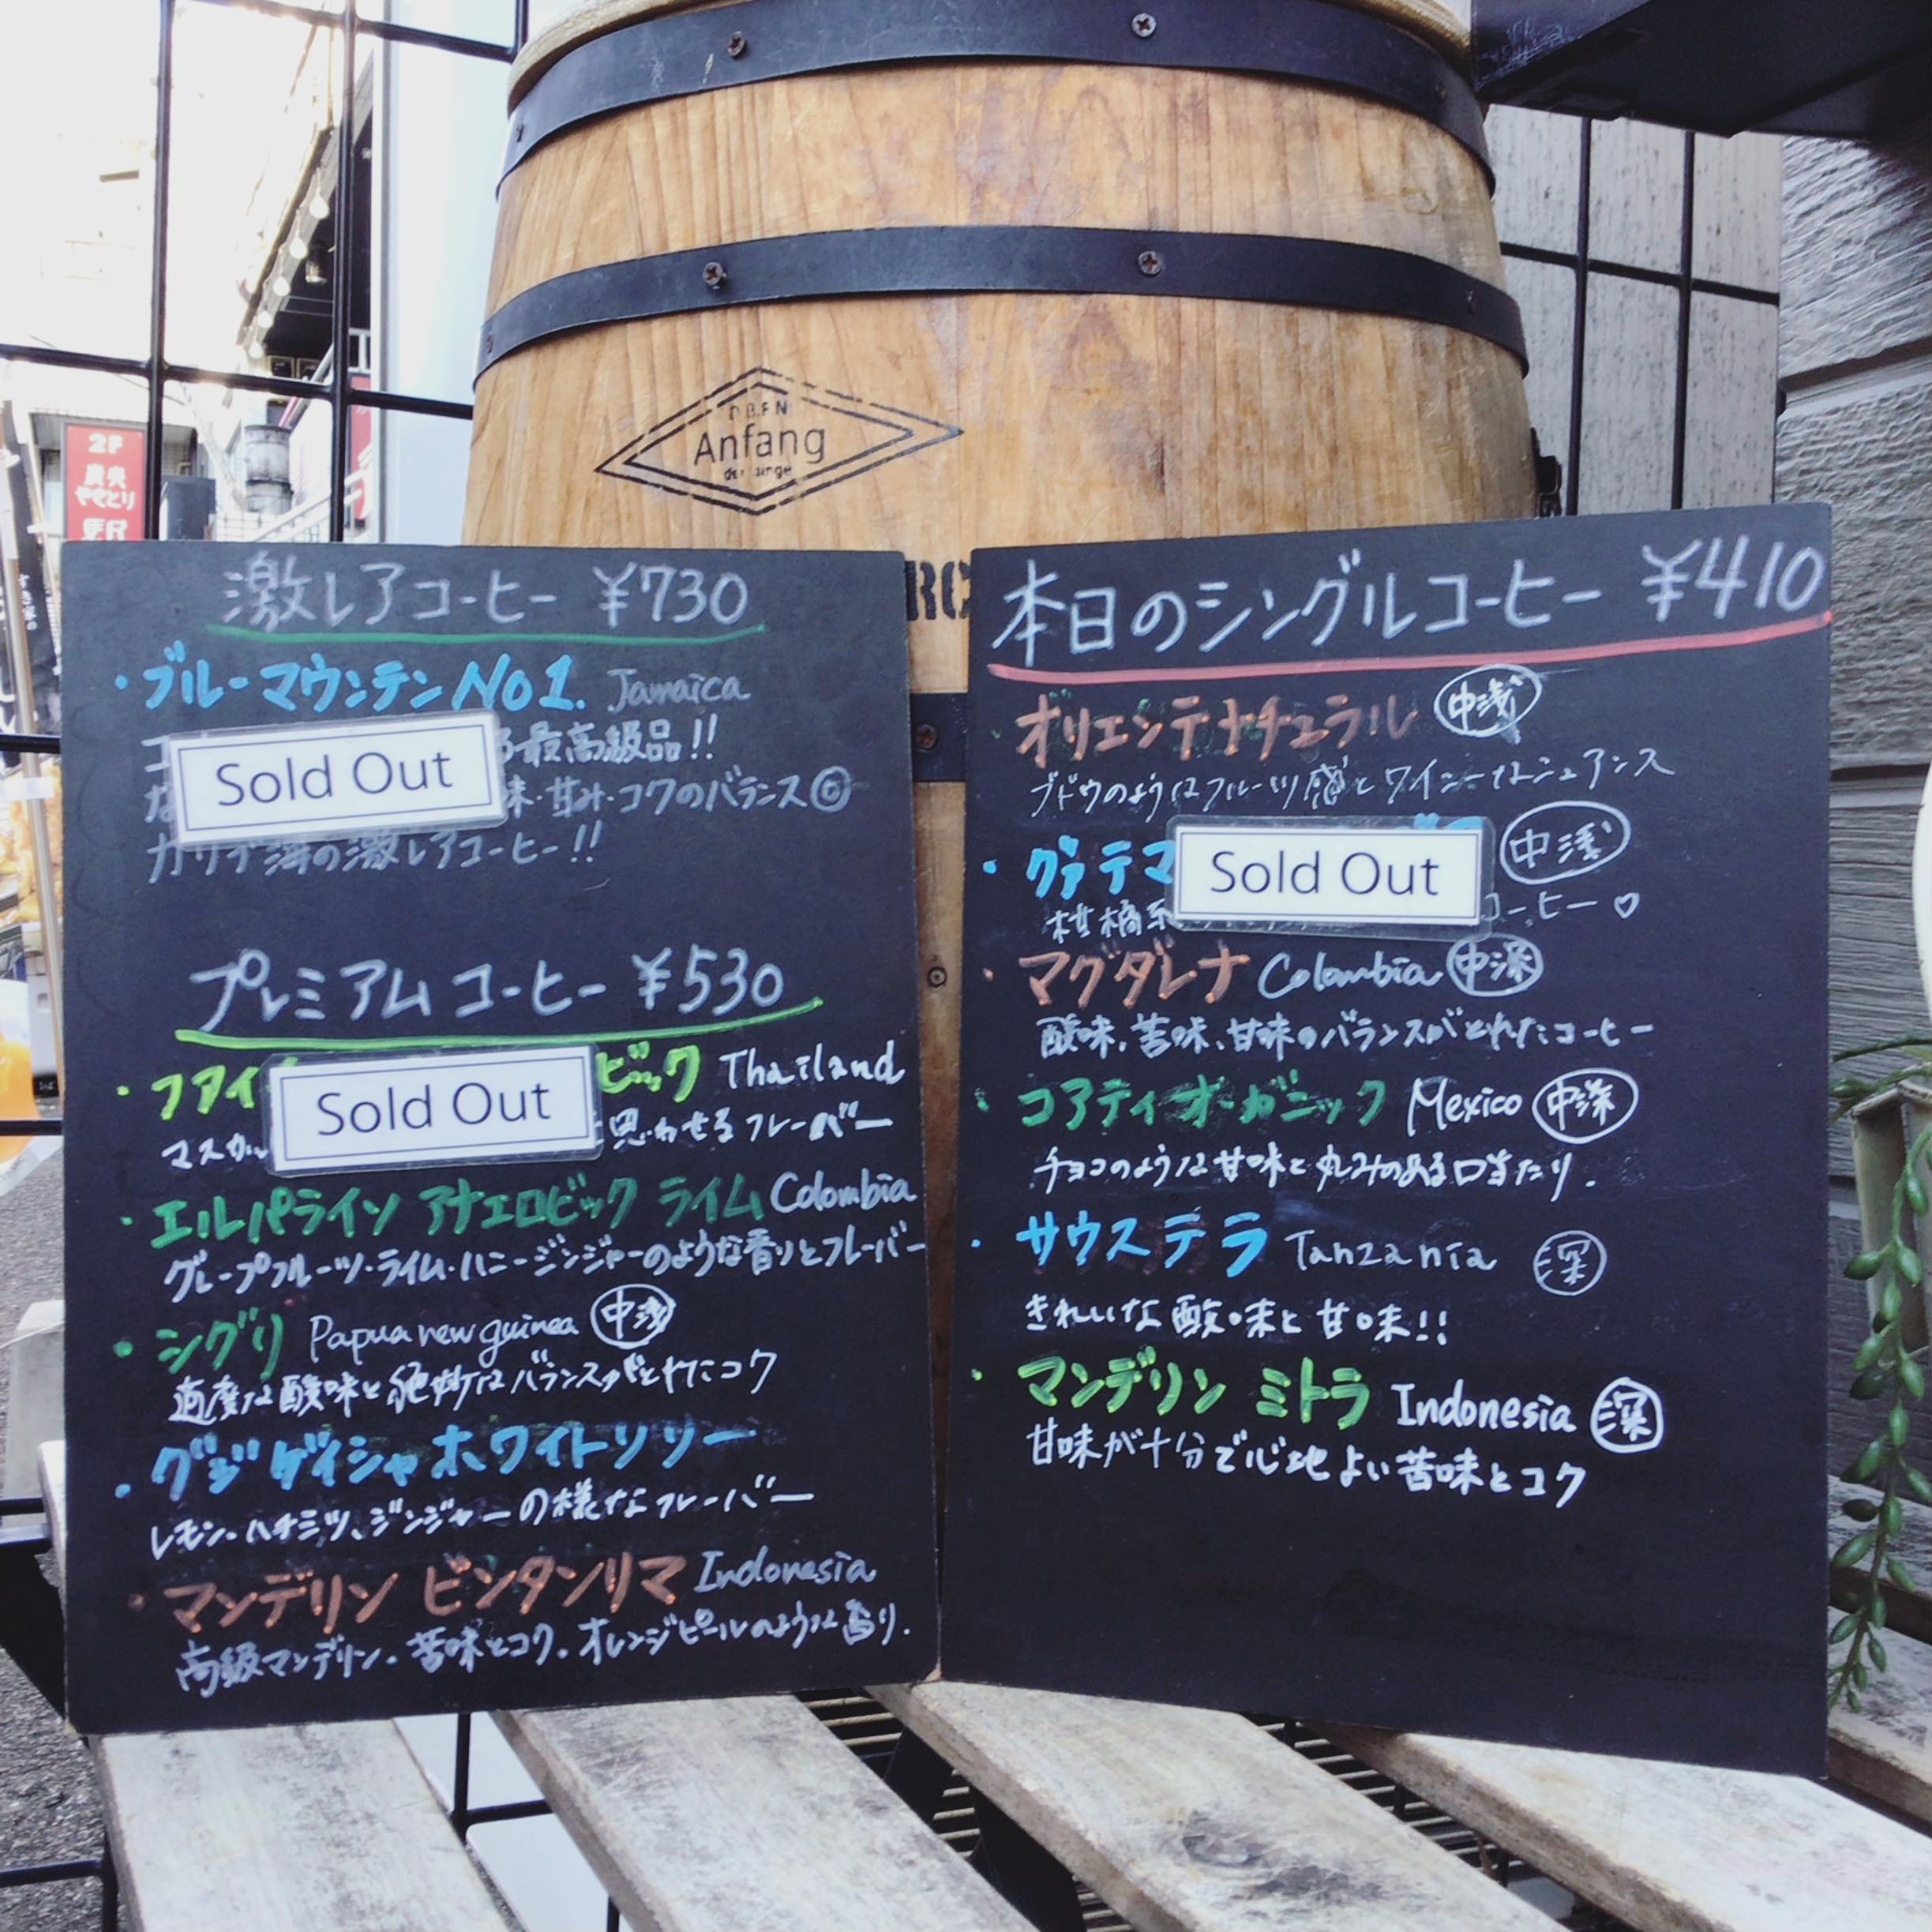 2F
炭火
やきとり
Anfang
RC
激レアコーヒー ¥730
・ブルーマウンテン No1. Jamaica
最高級品!!
Sold Out
味・甘み・コクのバランス◎
カリブ海の激レアコーヒー!!
プレミアムコーヒー ¥530
・ファイ ビック Thailand
Sold Out
マスカッ 思わせるフレーバー
・エルパライソ アナエロビック ライム Colombia
グレープフルーツ・ライム・ハニージンジャーのような香りとフレーバー
・シグリ Papua new guinea 中浅
適度な酸味と絶妙なバランスがとれたコク
・グジ ゲイシャ ホワイトリリー
レモン・ハチミツ、ジンジャーの様なフレーバー
・マンデリン ビンタンリマ Indonesia
高級マンデリン。苦味とコク。オレンジピールのような香り.
本日のシングルコーヒー ¥410
・オリエンテナチュラル 中浅
ブドウのようなフルーツ感とワイニーなニュアンス
・グァテマ 中浅
Sold Out
柑橘系 コーヒー♡
・マグダレナ Colombia 中深
酸味、苦味、甘味のバランスがとれたコーヒー
・コアティオーガニック Mexico 中深
チョコのような甘味と丸みのある口当たり.
・サウステラ Tanzania 深
きれいな酸味と甘味!!
・マンデリン ミトラ Indonesia 深
甘味が十分で心地よい苦味とコク